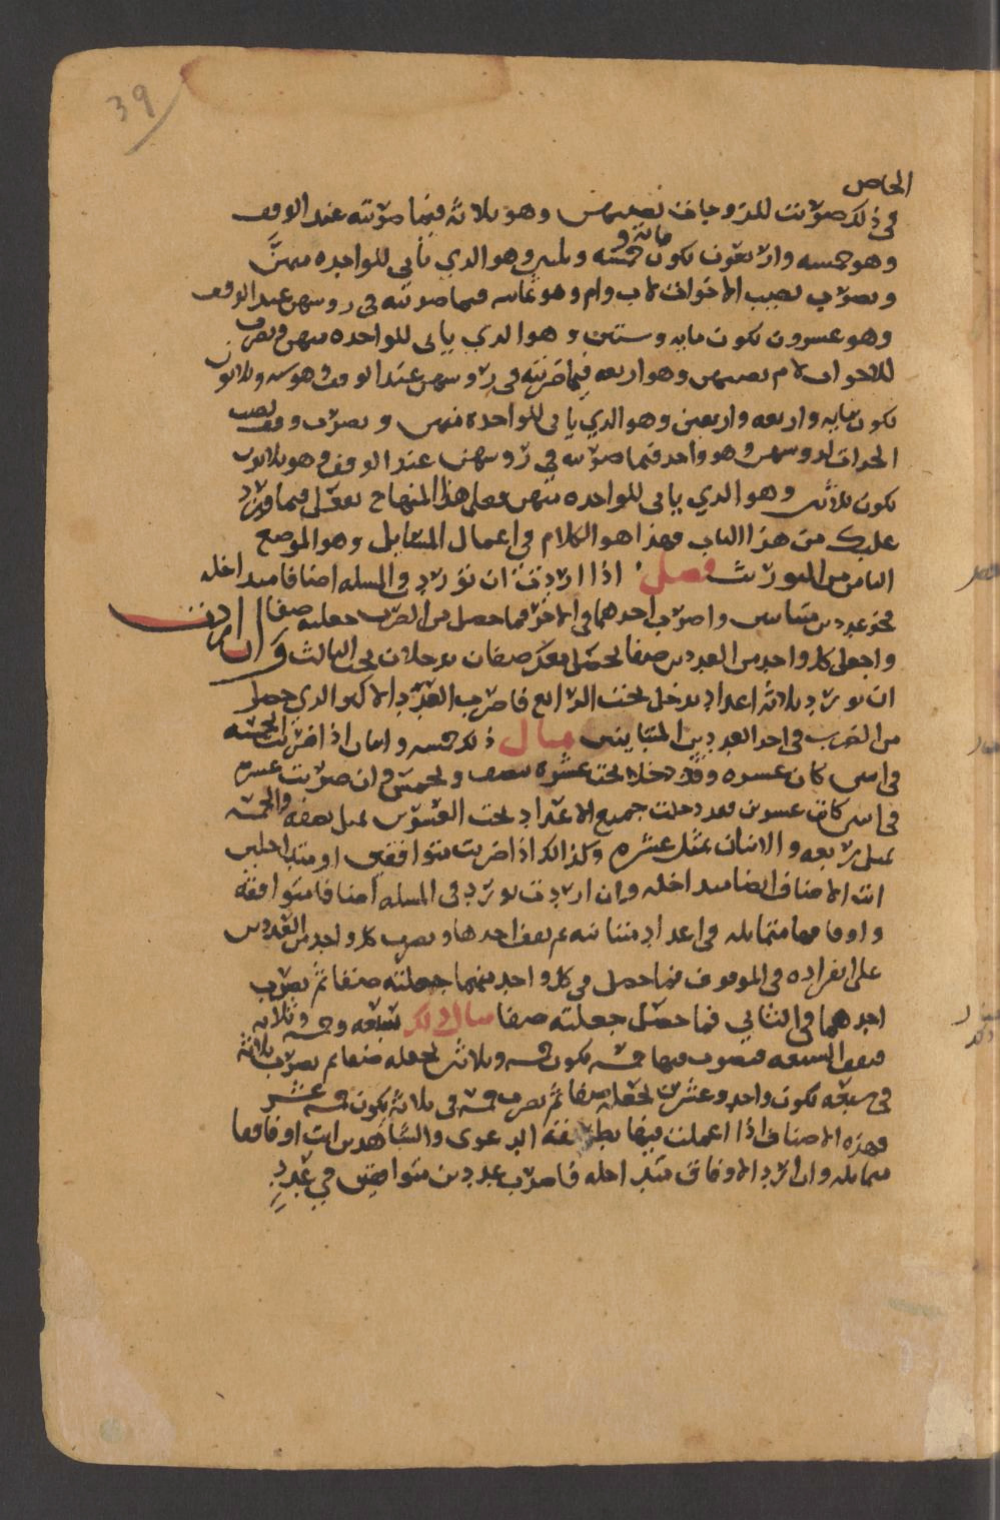 39
الخاص
في ذلك ضربت للزوجات نصيبهن وهو ثلاثة فيما ضربته عند الوقف
وهو خمسه واربعون تكون مائة و خمسة وثلثين وهو الذي ياتي للواحده منهن
وتضرب نصيب الاخوات لاب وام وهو ثمانيه فيما ضربته في روسهن عند الوقف
وهو عشرون تكون مايه وستين وهو الذي ياتي للواحده منهن وتضرب
للاخوات لام نصيبهن وهو اربعه فيما ضربته في روسهن عند الوقف وهو سته وثلاثون
تكون مايه واربعه واربعين وهو الذي ياتي للواحدة منهن وتضرب وفق نصيب
الجدات لروسهن وهو واحد فيما ضربته في روسهن عند الوقف وهو ثلاثون
تكون ثلاثين وهو الذي ياتي للواحده منهن فعلى هذا المنهاج تعمل فيما ورد
عليك من هذا الباب فهذا هو الكلام في اعمال المسايل وهو الموضع
الثامن من التوريث فصل اذا اردت ان تورد في المسله اصنافا متداخله
فخذ عددين متباينين واضرب احدهما في الاخر فما حصل من الضرب جعلته صنفا
واجعل كل واحد من العددين صنفا يحصل معك صنفان يدخلان تحت الثالث وان اردت
ان تورد ثلاثة اعداد يدخل تحت الرابع فاضرب العدد الاكبر الذي حصل
من الضرب في احد العددين المتباينين مثال ذلك خمسه واثنان اذا ضربت الخمسه
في اثنين كان عشره وقد دخلا تحت عشرة بنصف وخمس وان ضربت عشره
في اثنين كانت عشرين فقد دخلت جميع الاعداد تحت العشرين تمثل نصفه والخمسه
تمثل ربعه والاثنان تمثل عشره وكذلك اذا ضربت متوافقين او متداخلين
اتت الاصناف ايضا متداخله وان اردت تورد في المسله اصنافا متوافقه
واوفاقها متماثله في اعداد متباينه ثم تقف احدها وتضرب كل واحد من العددين
على انفراده في الموقوف فما حصل في كل واحد منهما جعلته صنفا ثم تضرب
احدهما في الثاني فما حصل جعلته صنفا مثال ذلك سبعه وخمسه وثلاثه
فتقف السبعه فتضرب فيها خمسه تكون خمسه وثلاثين تجعله صنفا ثم تضرب ثلاثة
في سبعه تكون واحد وعشرين تجعله صنفا ثم تضرب خمسه في ثلاثه يكون خمسه عشر
فهذه الاصناف اذا اعملت فيها بطريقة الدعوى والشاهدين اتت اوفاقها
متماثله وان ترد الاوفاق متداخله فاضرب عددين متوافقين في عدد